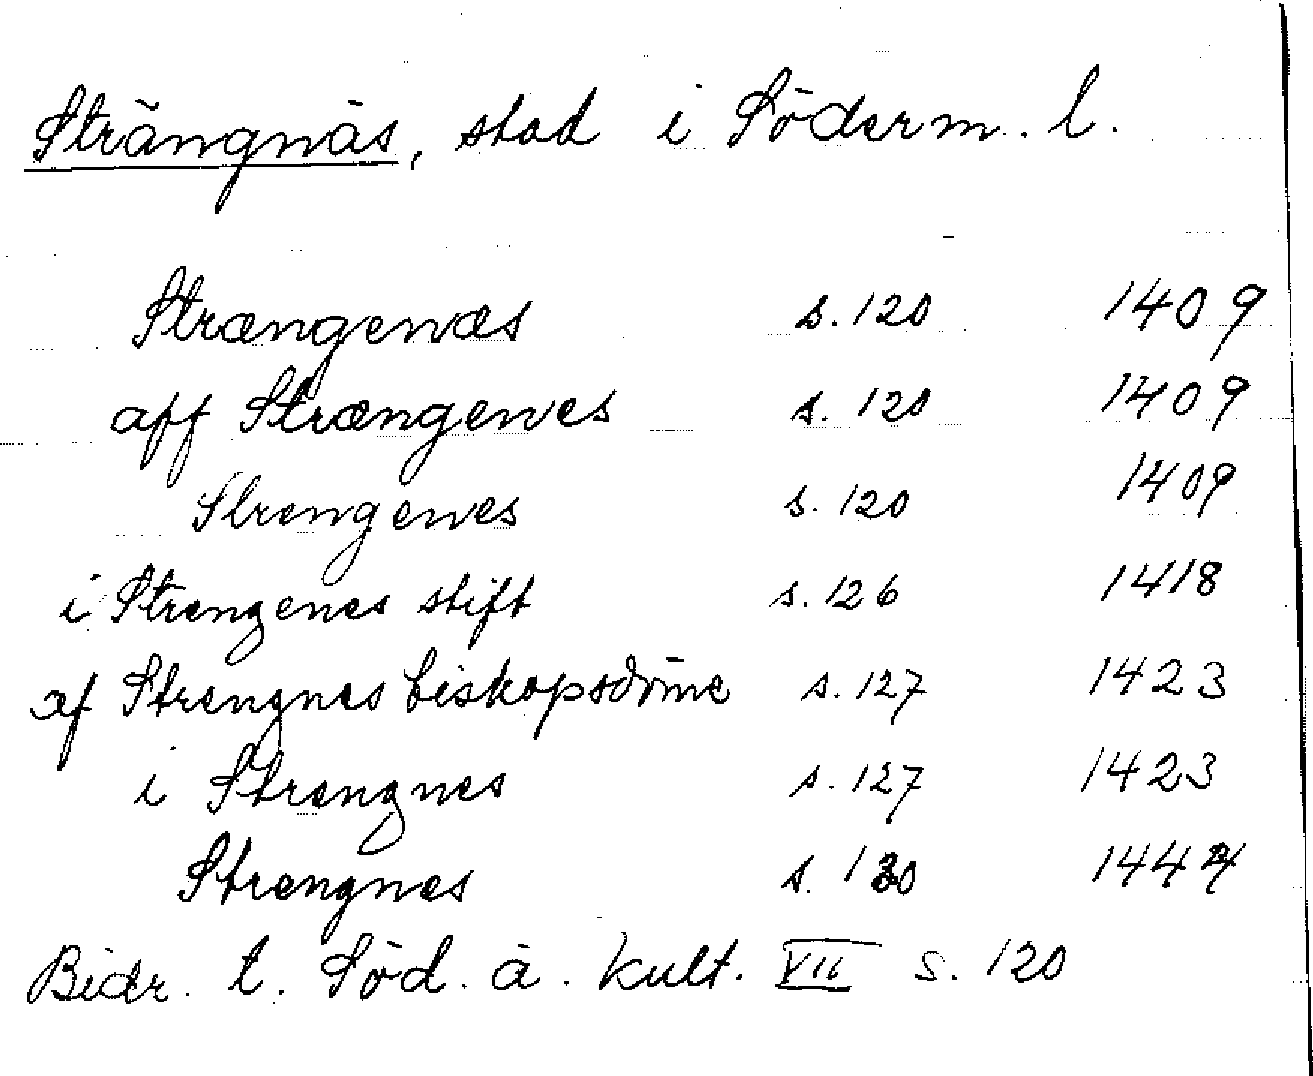 Strängnäs, stad i Söderm. l.
Strængenæs s. 120 1409
aff Strængenes s. 120 1409
Strengenes s. 120 1409
i Strengenes stift s. 126 1418
af Strengnes biskopsdöme s. 127 1423
i Strengnes s. 127 1423
Strengnes s. 130 1444
Bidr. t. Söd. ä. kult. VII s. 120